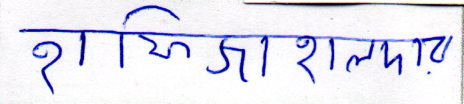 হাফিজা হালদার